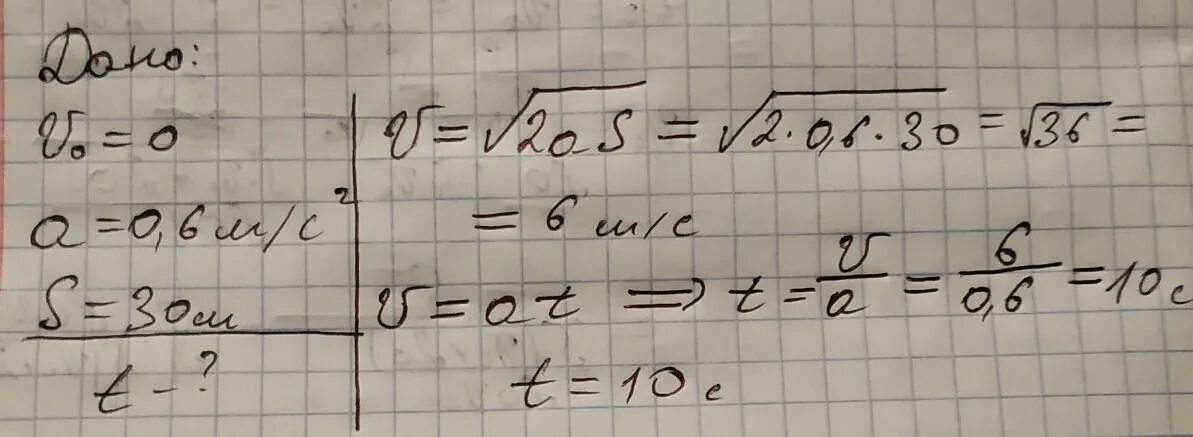 Дано:
υ₀ = 0
a = 0,6 м/с²
S = 30м
t - ?
υ = √2aS = √2·0,6·30 = √36 =
= 6 м/с
υ = at ⇒ t = υ/a = 6/0,6 = 10 с
t = 10 с